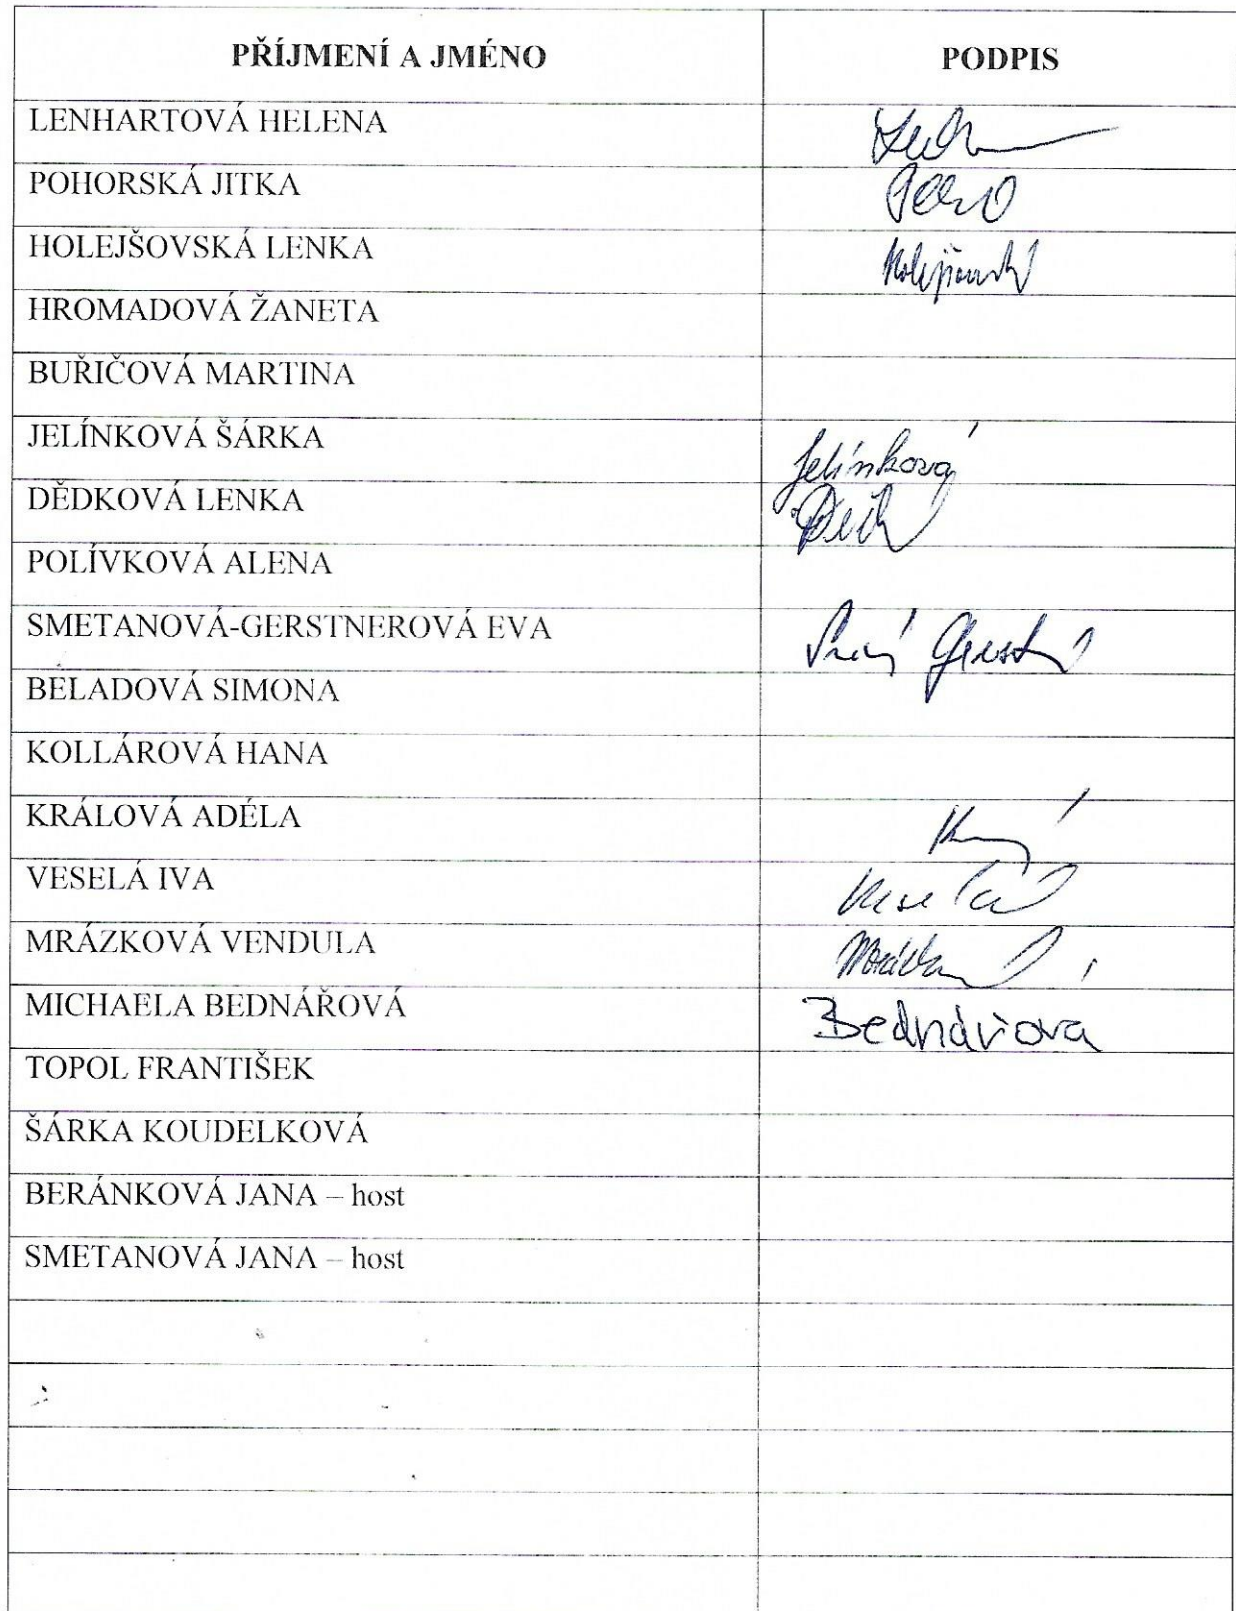 PŘÍJMENÍ A JMÉNO PODPIS
LENHARTOVÁ HELENA
POHORSKÁ JITKA
HOLEJŠOVSKÁ LENKA Holejšovská
HROMADOVÁ ŽANETA
BUŘIČOVÁ MARTINA
JELÍNKOVÁ ŠÁRKA Jelínková
DĚDKOVÁ LENKA
POLÍVKOVÁ ALENA
SMETANOVÁ-GERSTNEROVÁ EVA
BELADOVÁ SIMONA
KOLLÁROVÁ HANA
KRÁLOVÁ ADÉLA
VESELÁ IVA Veselá
MRÁZKOVÁ VENDULA
MICHAELA BEDNÁŘOVÁ Bednářova
TOPOL FRANTIŠEK
ŠÁRKA KOUDELKOVÁ
BERÁNKOVÁ JANA – host
SMETANOVÁ JANA – host